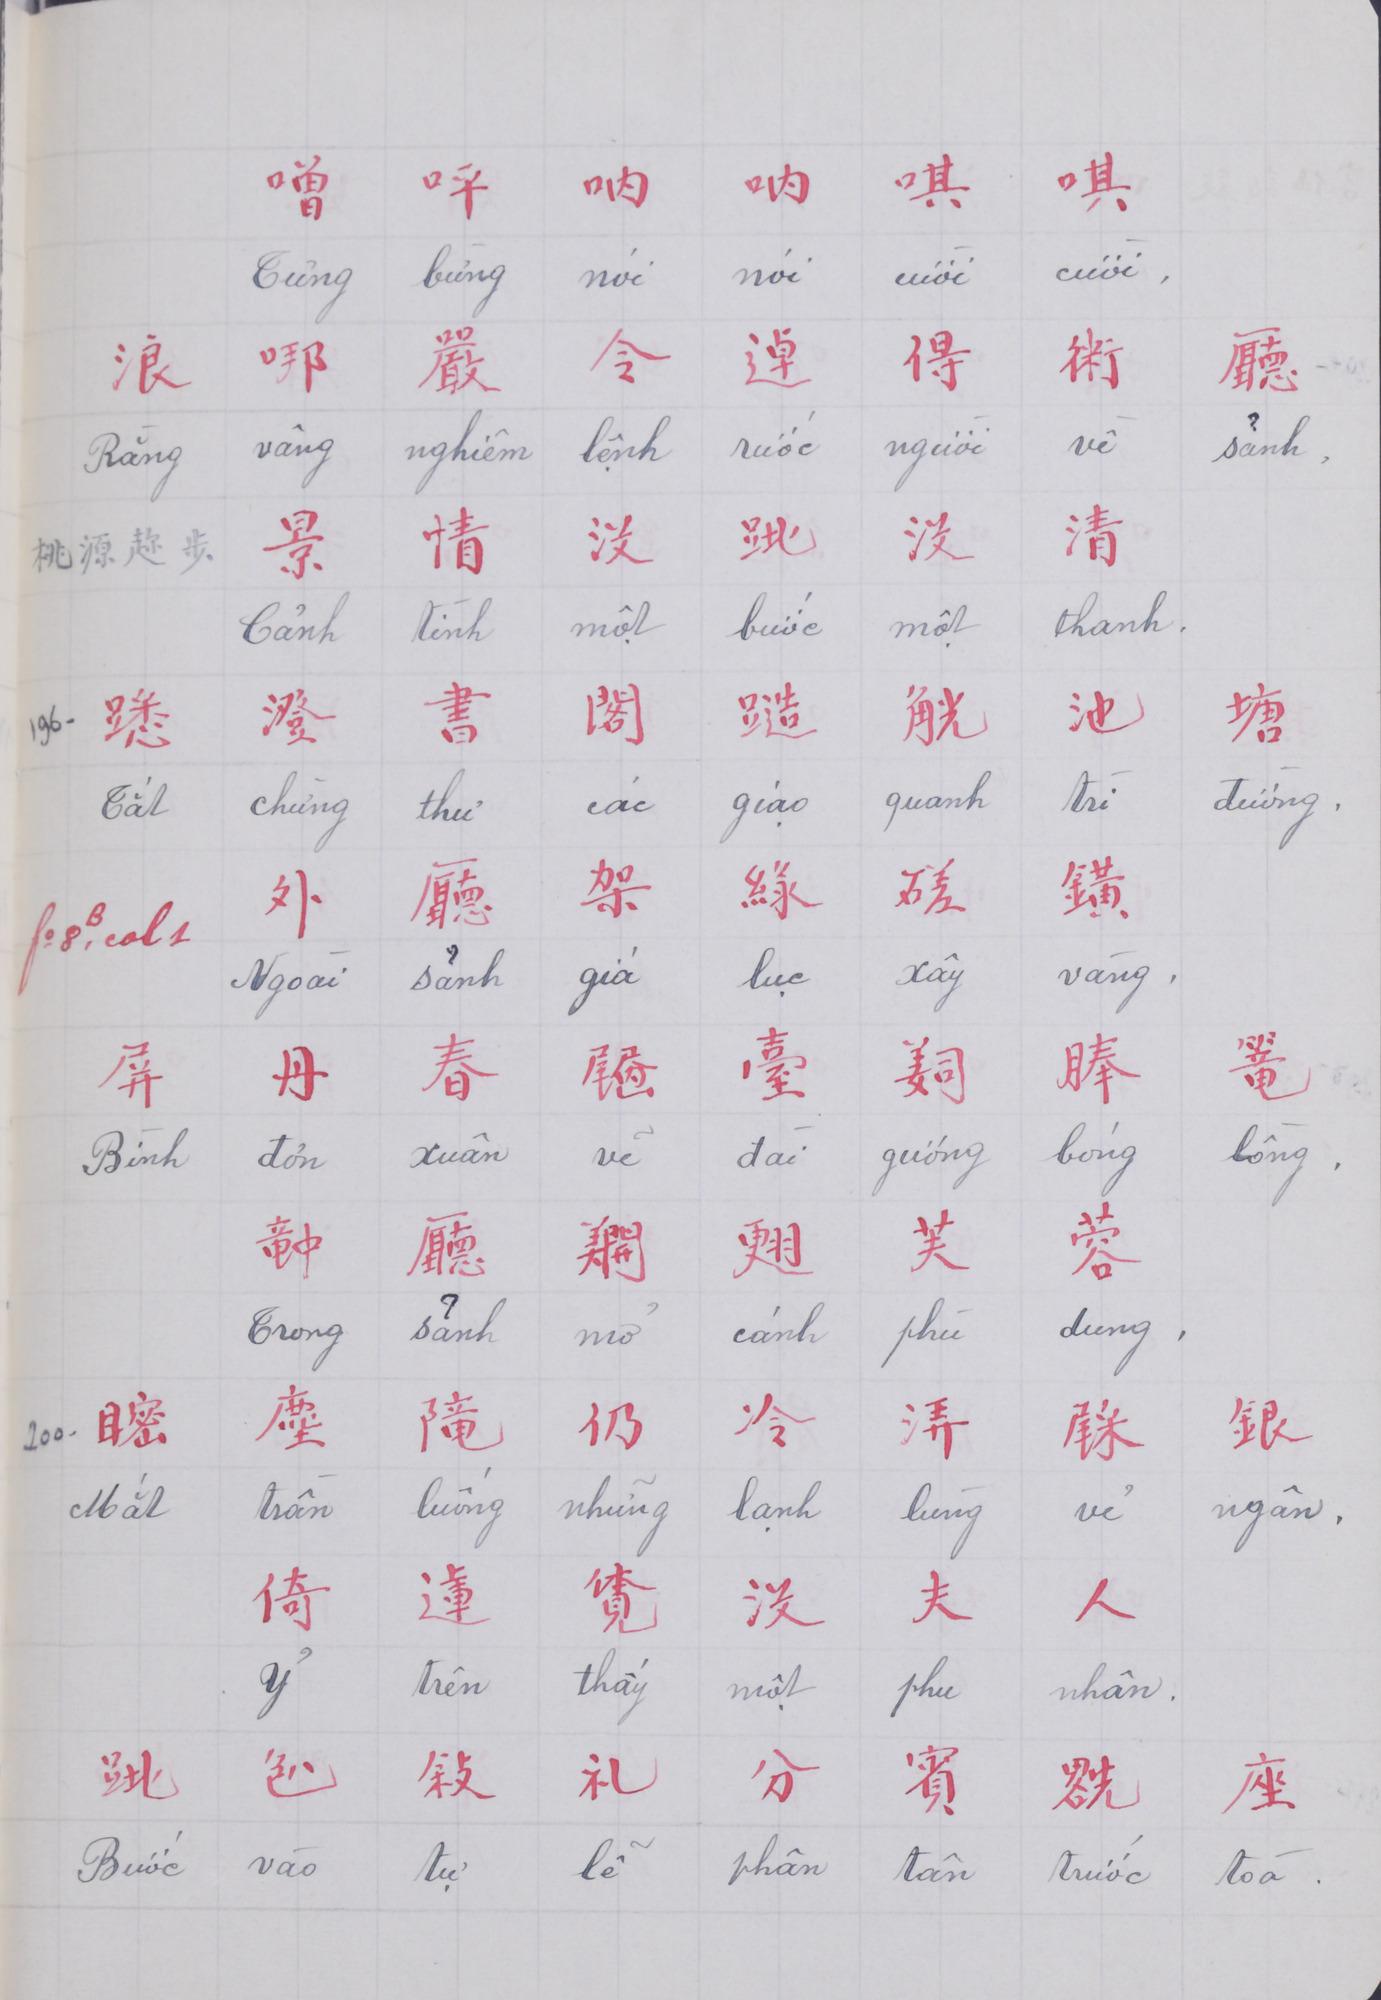 噌 呯 吶 吶 唭 唭
Tưng bừng nói nói cười cười,
浪 哪 嚴 令 逴 得 術 廳
Rằng vâng nghiêm lệnh rước người về sảnh,
桃源趂步 景 情 没 跐 没 清
Cảnh tình một bước một thanh.
196- 澄 書 閣 觥 池 塘
Tắt chừng thư các giạo quanh trì đường,
fo 8B, col 1 外 廳 架 緑 磋 鐄
Ngoài sảnh giá lục xây vàng,
屏 丹 春 臺 捧 篭
Bình đơn xuân vẽ đài gương bóng lồng,
廳 翅 芙 蓉
Trong sảnh mở cánh phù dung,
200- 塵 隴 仍 冷 銀
Mắt trần luống những lạnh lùng vẻ ngân,
倚 蓮 覽 没 夫 人
Ỷ trên thấy một phu nhân.
跐 敍 礼 分 賓 座
Bước vào tự lễ phân tân trước toà.